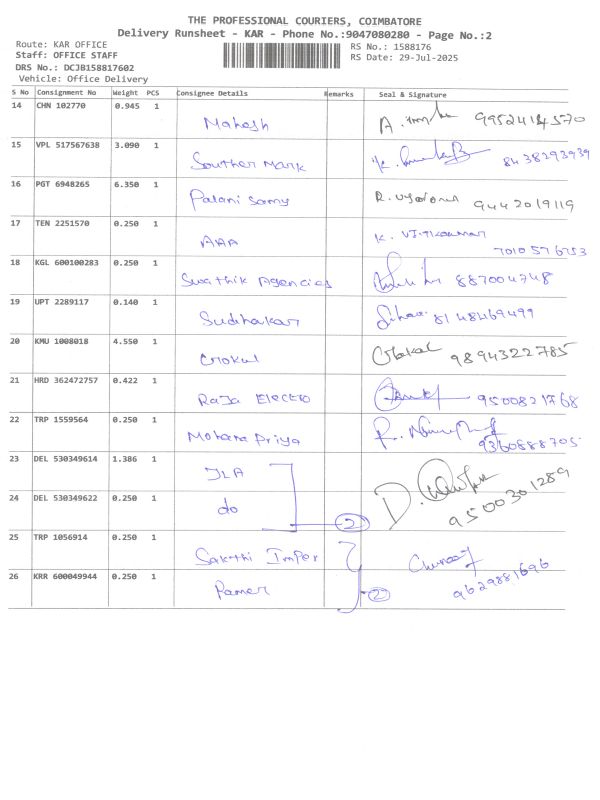 THE PROFESSIONAL COURIERS, COIMBATORE
Delivery Runsheet - KAR - Phone No.:9047080280 - Page No.:2
Route: KAR OFFICE
RS No.: 1588176
Staff: OFFICE STAFF
RS Date: 29-Jul-2025
DRS No.: DCJB158817602
Vehicle: Office Delivery
S No Consignment No Weight PCS Consignee Details Remarks Seal & Signature
14 CHN 102770 0.945 1
Mahesh A. 9952414570
15 VPL 517567638 3.090 1
Souther Mark 8438293939
16 PGT 6948265 6.350 1
Palani Samy R. 9442019119
17 TEN 2251570 0.250 1
AAA K. 7010576753
18 KGL 600100283 0.250 1
Swathik Agencies 887004748
19 UPT 2289117 0.140 1
Sudhakar 8148469499
20 KMU 1008018 4.550 1
Gokul Gokul 9894322785
21 HRD 362472757 0.422 1
RaJa Electro 9500821768
22 TRP 1559564 0.250 1
Mohana Priya 9360888705
23 DEL 530349614 1.386 1
JLA D. 9500301289
24 DEL 530349622 0.250 1
do 2
25 TRP 1056914 0.250 1
Sakthi Imper 9629881696
26 KRR 600049944 0.250 1
Pamer 2